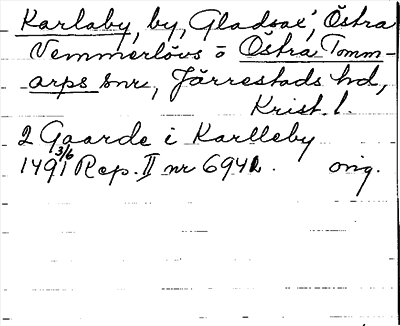 Karlaby, by, Gladsax, Östra
Vemmerlövs o Östra Tomm-
arps snr, Järrestads hd,
Krist. l.
2 Gaarde i Karlleby
1491 3/6 Rep. II nr 6942. orig.